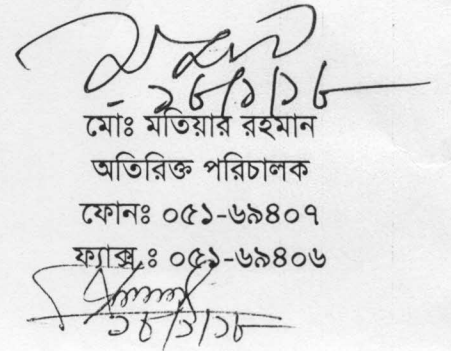 ১৮/১/১৮
মোঃ মতিয়ার রহমান
অতিরিক্ত পরিচালক
ফোনঃ ০৫১-৬৯৪০৭
ফ্যাক্স ঃ ০৫১-৬৯৪০৬
১৮/১/১৮